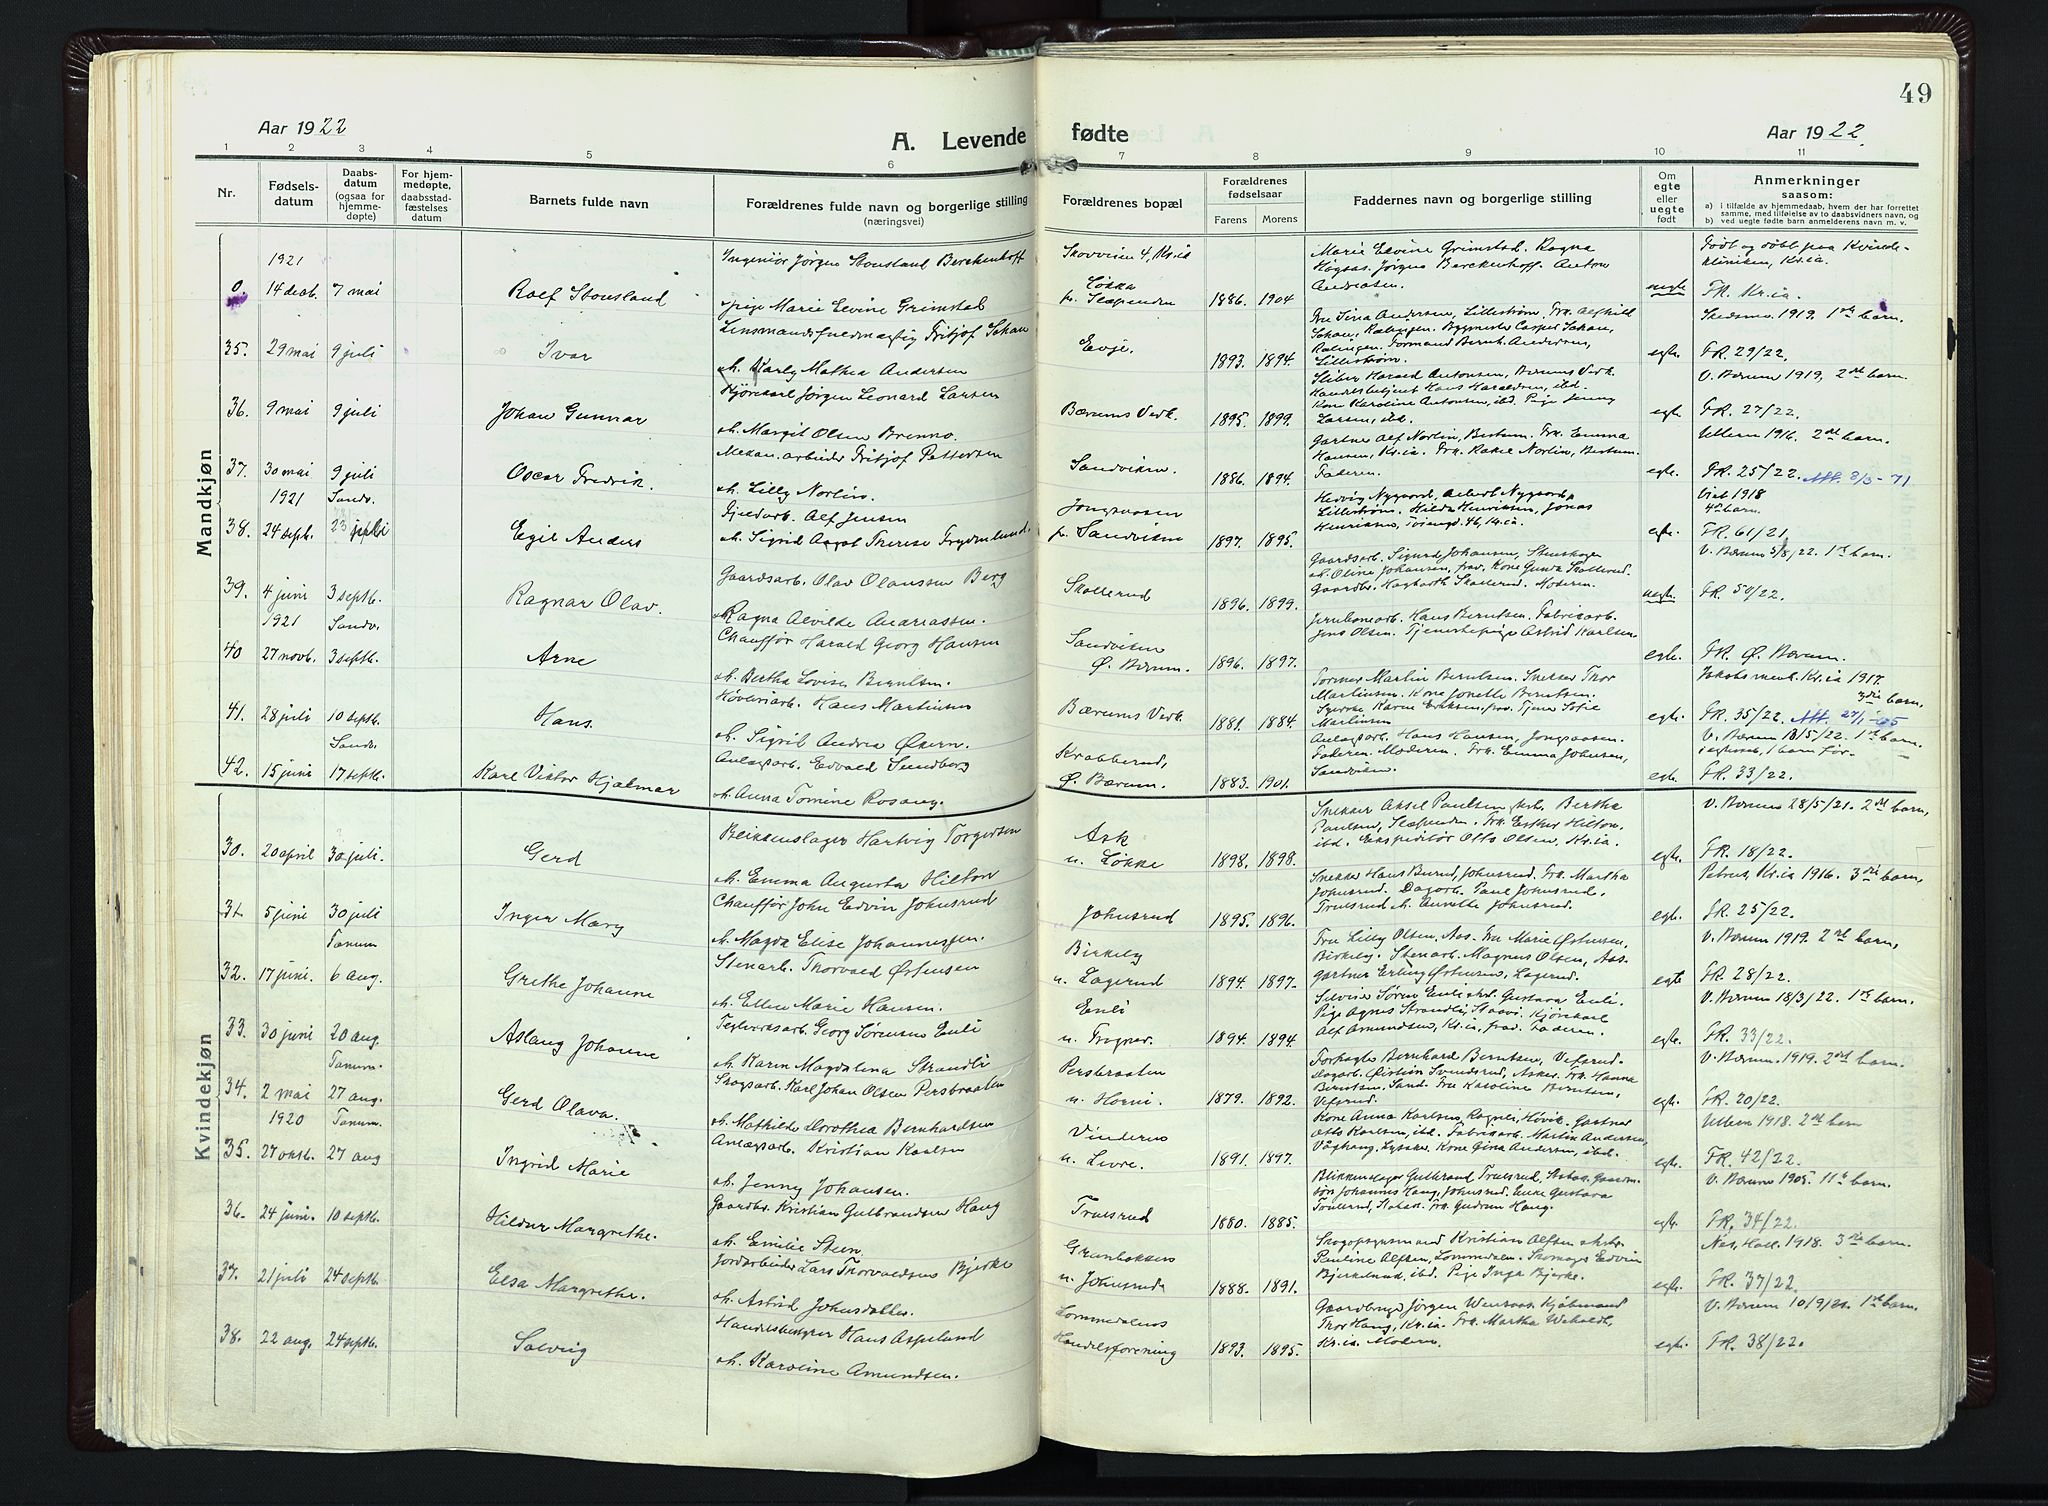 49
Aar 1922
A. Levende
fødte
Aar 1922.
1 2 3 4 5 6 7 8 9 10 11
Nr.
Fødsels-
datum
Daabs-
datum
(ogsaa for
hjemme-
døpte)
For hjem-
medøpte,
daabsstad-
fæstelses
datum
Barnets fulde navn
Forældrenes fulde navn og borgerlige stilling
(næringsvei)
Forældrenes bopæl
Forældrenes
fødselsaar
Farens
Morens
Faddernes navn og borgerlige stilling
Om
egte
eller
uegte
født
Anmerkninger
saasom:
a) i tilfælde av hjemmedaab, hvem der har forrettet
samme, med tilføielse av to daabsvidners navn, og
b) ved uegte fødte barn anmelderens navn m. v.
Mandkjøn
1921
0. 14 decb. 7 mai
Rolf Stousland
Ingeniør Jørgen Stousland Berckenhoff
pige Marie Elvine Grimstad
Skovveien 4, Kr.ia
Løkka
p. Slæpenden 1886. 1904
Marie Elvine Grimstad. Ragna
Høgsas. Jørgen Berckenhoff. Anton
Andreasen.
uegte
Født og døbt paa Kvinde-
kliniken, Kr.ia.
FR. Kr.ia.
35. 29 mai 9 juli
Ivar
Lensmandsfuldmægtig Fritjof Johan
h. Karly Mathea Andersen
Evje. 1893. 1894.
Fru Lina Andersen, Lillestrøm, Frk. Alfhild
Johan, Rælingen. Bygmester Casper Johan,
Rælingen. Formand Bernh. Andersen,
Lillestrøm.
egte.
Skedsmo 1919. 1ste barn.
FR. 29/22.
36. 9 mai 9 juli
Johan Gunnar
Kjørekarl Jørgen Leonard Larsen
h. Margit Olsen Brenno.
Bærums Verk. 1895. 1899.
Støber Harald Antonsen, Bærums Verk.
Handelsbetjent Hans Haraldsen, ibd.
Kone Karoline Antonsen, ibd. Pige Jenny
Larsen, ibd.
egte.
V. Bærum 1919, 2det barn.
FR. 27/22.
37. 30 mai 9 juli
Oscar Fredrik.
Mekan. arbeider Fritjof Pettersen
h. Lilly Norlin.
Sandviken. 1886. 1894.
Gartner Alf Norlin, Bestum. Frk. Emma
Hansen, Kr.ia. Frk. Rakel Norlin, Bestum.
Faderen.
egte.
Ullern 1916. 2det barn.
FR. 25/22. Att. 2/3-71
1921 Sandv.
38. 24 septb. 23 juli
Egil Anders
Fjeldarb. Alf Jensen
h. Sigrid Aagot Therese Frydenlund.
Jongsaasen
p. Sandviken 1897. 1895.
Hedvig Nygaard, Albert Nygaard,
Lillestrøm. Hilda Henriksen, Jonas
Henriksen, Tøiengt. 46, Kr.ia.
egte.
Viet 1918
4de barn.
FR. 61/21.
39. 4 juni 3 septb.
Ragnar Olav.
Gaardsarb. Olav Olaussen Berg
Ragna Alvilde Andreassen.
Skollerud 1896. 1899.
Gaardsarb. Sigurd Johansen, Stenskogen
h. Oline Johansen, frav. Kone Gunda Skollerud.
Gaardbr. Hagbarth Skollerud. Moderen.
uegte.
V. Bærum 5/8/22. 1ste barn.
FR. 50/22.
1921 Sandv.
40 27 novb. 3 septb.
Arne
Chauffør Harald Georg Hansen
h. Bertha Lovise Berntsen.
Sandviken
Ø. Bærum. 1896. 1897.
Jernbanearb. Hans Berntsen. Fabrikarb.
Jens Olsen. Tjenestepige Astrid Karlsen.
egte.
FR. Ø. Bærum.
41. 28 juli 10 septb.
Hans.
Høvleriarb. Hans Martinsen
h. Sigrid Andrea Økern.
Bærums Verk. 1881. 1884.
Former Martin Berntsen. Snekker Thor
Martinsen. Kone Jonette Berntsen.
Syerske Karen Eriksen, frav. Tjener Sofie
Martinsen
egte.
Jakobs menh. Kr.ia 1917.
3die barn,
FR. 35/22. Att. 27/1-65
Sandv.
42. 15 juni 17 septb.
Karl Viktor Hjalmar
Anlægsarb. Edvald Sundberg
h. Anna Tomine Rosaug.
Krabberud,
Ø. Bærum. 1883. 1901.
Anlægsarb. Hans Hansen, Jongsaasen.
Faderen. Moderen. Frk. Emma Johnsen,
Sandviken.
egte.
V. Bærum 13/5/22. 1ste barn.
i egtesk., 1 barn før.
FR. 33/22.
Kvindekjøn
30. 20 april 30 juli.
Gerd
Blikkenslager Hartvig Torgersen
h. Emma Augusta Hilton
Ask
u. Løkke 1898. 1898.
Snekker Aksel Paulsen Bertha
Paulsen, Slæpenden. Frk. Esther Hilton,
ibd. Ekspeditør Otto Olsen, Kr.ia.
egte.
V. Bærum 28/5/21. 2det barn,
FR. 18/22.
31. 5 juni 30 juli
Inger Mary
Chauffør John Edvin Johnsrud
h. Magda Elise Johannesen.
Johnsrud 1895. 1896.
Snekker Hans Burud, Johnsrud. Frk. Martha
Johnsrud. Dagarb. Paul Johnsrud,
Trulsrud h. Enette Johnsrud.
egte.
Petrus, Kr.ia 1916. 3die barn,
FR. 25/22.
Tanum
32. 17 juni. 6 aug.
Grethe Johanne
Stenarb. Thorvald Østensen
h. Ellen Marie Hansen.
Birkely
u. Lagerud 1894. 1897.
Fru Lilly Olsen, Aas. Fru Marie Østensen,
Birkely. Stenarb. Magnus Olsen, Aas.
Gartner Erling Østensen, Lagerud.
egte
V. Bærum 1919. 2det barn,
FR. 28/22.
33. 30 juni 20 aug.
Aslaug Johanne
Teglverksarb. Georg Sørensen Enli
h. Karen Magdalena Strandli
Enli
u. Tryner. 1894. 1894.
Selveier Søren Enli Gustava Enli.
Pige Agnes Strandli, Staavi. Kjørekarl
Alf Amundsen, Kr.ia, frav. Faderen.
egte.
V. Bærum 18/3/22. 1ste barn.
FR. 33/22.
Tanum.
34. 2 mai 27 aug.
Gerd Olava.
Skogsarb. Karl Johan Olsen Persbraaten
h. Mathilde Dorothea Bernhardsen
Persbraaten
u. Horni. 1879. 1892.
Forpagter Bernhard Berntsen, Vefsrud.
Dagarb. Kristian Svendsrud, Asker. Frk. Hanna
Berntsen, Sand. Fru Karoline Berntsen,
Vefsrud.
egte.
V. Bærum. 1919. 2det barn.
FR. 20/22.
1920 Tanum.
35. 27 oktb. 27 aug
Ingrid Marie
Anlægsarb. Kristian Karlsen
h. Jenny Johansen.
Vinderen
u. Levre. 1891. 1897.
Kone Anna Karlsen, Ragnli, Høvik. Gartner
Otto Karlsen, ibd. Fabrikarb. Martin Andersen,
Vaghaug, Lysaker. Kone Gina Andersen, ibd.
egte.
Ullern 1918. 2det barn
FR. 42/22.
36. 24 juni. 10 septb.
Hildur Margrethe.
Gaardbr. Kristian Gulbrandsen Haug
h. Emilie Steen.
Trulsrud 1880. 1885.
Blikkenslager Gulbrand Trulsrud, Stabæk. Gaardm-
søn Johannes Haug, Johnsrud. Enke Gustava
Trulsrud, Stabæk. Frk. Gudrun Haug.
egte.
V. Bærum 1905. 11te barn.
FR. 34/22.
37. 21 juli 24 septb.
Elsa Margrethe.
Jordarbeider Lars Thorvaldsens Bjerke
h. Astrid Johnsdatter.
Granbakken
u. Johnsrud 1888. 1891.
Skogopsynsmand Kristian Alfsen
Pauline Alfsen, Lommedalen. Skomager Edvin
Bjerkelund, ibd. Pige Inga Bjerke.
egte.
Nes, Hall. 1918. 3die barn.
FR. 37/22.
38. 22 aug. 24 septb.
Solveig
Handelsbestyrer Hans Aspelund
h. Karoline Amundsen.
Lommedalens
Handelsforening 1893. 1895.
Gaardbruger Jørgen Wensaas. Kjøbmand
Thor Haug, Kr.ia. Frk. Martha Weholdt,
Kr.ia. Moderen.
egte.
V. Bærum 10/9/21. 1ste barn.
FR. 38/22.